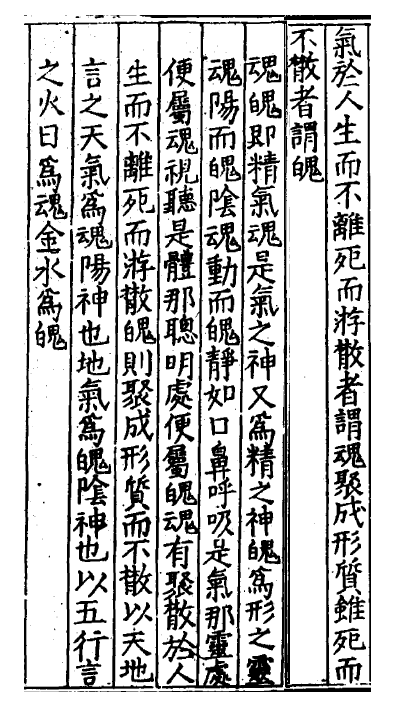 氣於人生而不離死而游散者謂魂聚成形質雖死而
不散者謂魄
魂魄即精氣魂是氣之神又爲精之神魄爲形之靈
魂陽而魄陰魂動而魄靜如口鼻呼吸是氣那靈處
便屬魂視聽是體那聰明處便屬魄魂有聚散於人
生而不離死而游散魄則聚成形質而不散以天地
言之天氣爲魂陽神也地氣爲魄陰神也以五行言
之火日爲魂金水爲魄